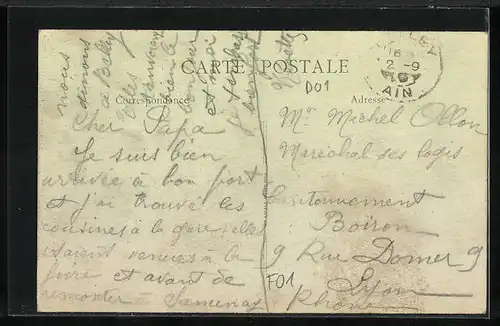 CARTE POSTALE
Correspondance
Adresse
D01
16
2 -9
AIN
Cher Papa
Je suis bien
arrivée à bon port
et j'ai trouvé les
cousines à la gare elles
étaient venues à la
foire et avant de
remonter à
nous
dinons
à Belley
bien le
bonjour
et moi
je
Mr Michel Ollon
Maréchal des logis
Cantonnement
Boiron
9 Rue Domer 9
Lyon
Rhône
F01